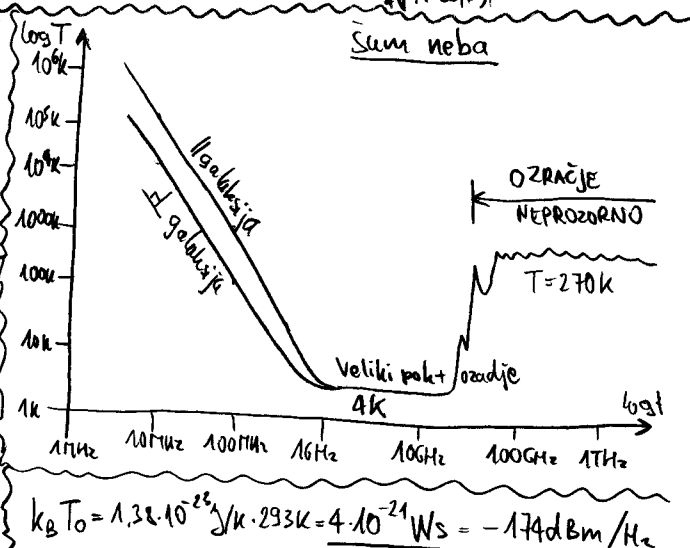 Šum neba
logT
10⁶K
10⁵K
10⁴K
1000K
100K
10K
1K
|| galaksija
⊥ galaksija
OZRAČJE
NEPROZORNO
T=270K
Veliki pok + ozadje
4K
logf
1MHz 10MHz 100MHz 1GHz 10GHz 100GHz 1THz
k_B T₀ = 1,38·10⁻²³ J/K · 293K = 4·10⁻²¹ Ws = -174dBm/Hz